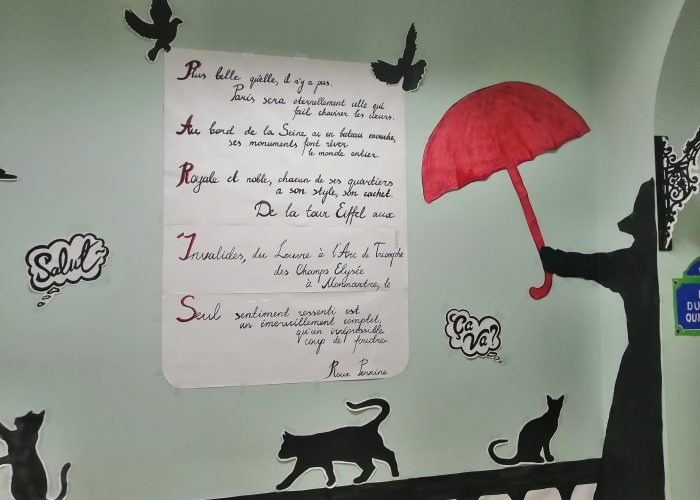 Plus belle qu'elle, il n'y a pas.
Paris sera éternellement celle qui
fait chavirer les cœurs.
Au bord de la Seine ou en bateau mouche,
ses monuments font rêver
le monde entier.
Royale et noble, chacun de ses quartiers
a son style, son cachet.
De la tour Eiffel aux
Invalides, du Louvre à l'Arc de Triomphe
des Champs Elysée
à Monmartre, le
Seul sentiment ressenti est
un émerveillement complet,
qu'un irrépressible
coup de foudre.
Roux Perrine
Salut
Ça
Va?
DU
QU